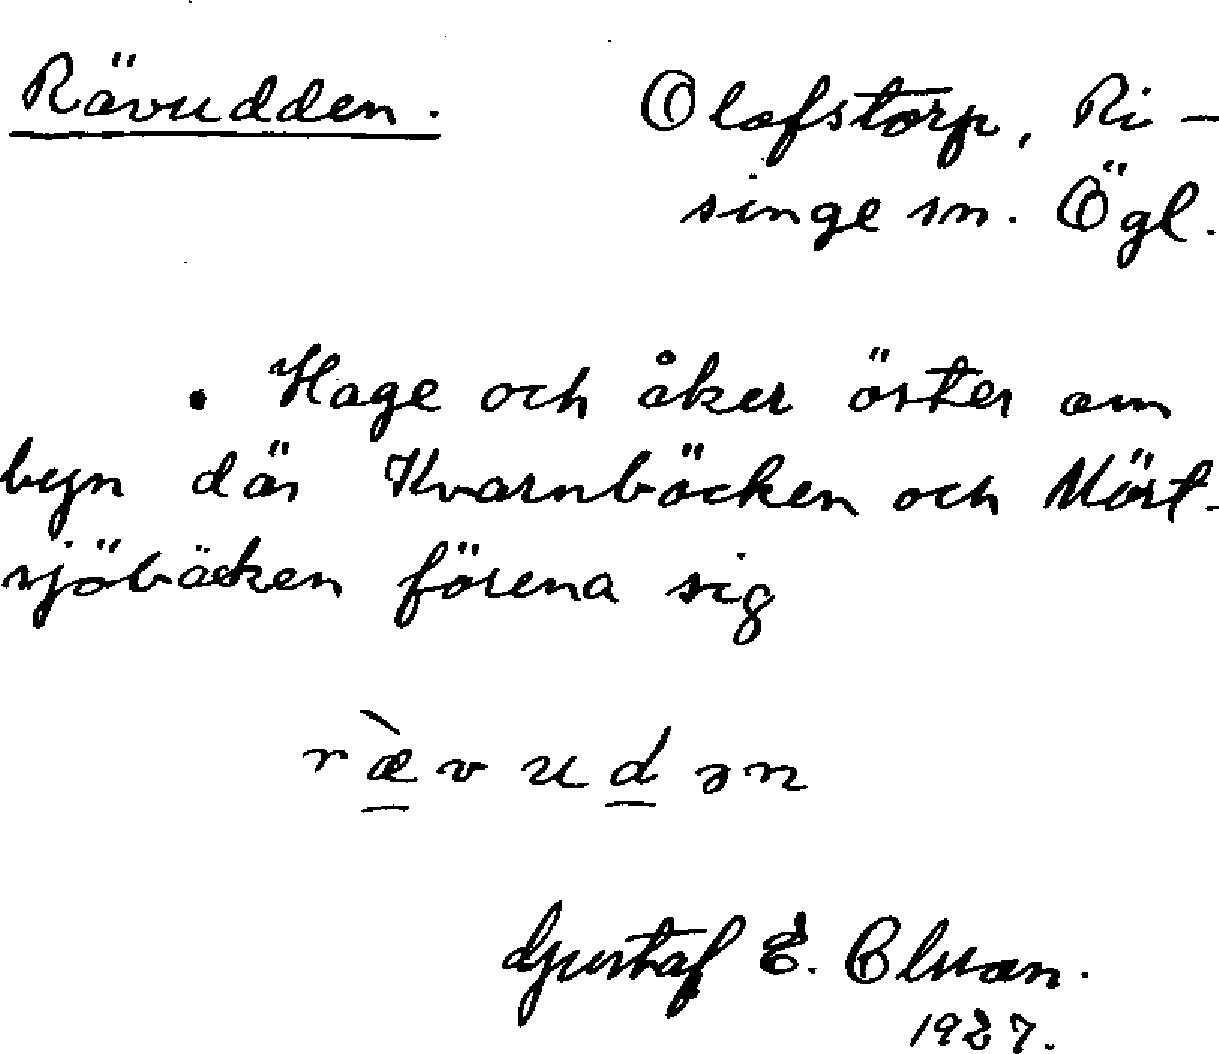 Rävudden. Olofstorp, Ri-
singe sn. Ögl.
. Hage och åker öster om
byn där Kvarnbäcken och Mört-
sjöbäcken förena sig
rævudən
Gustaf E.
1927.